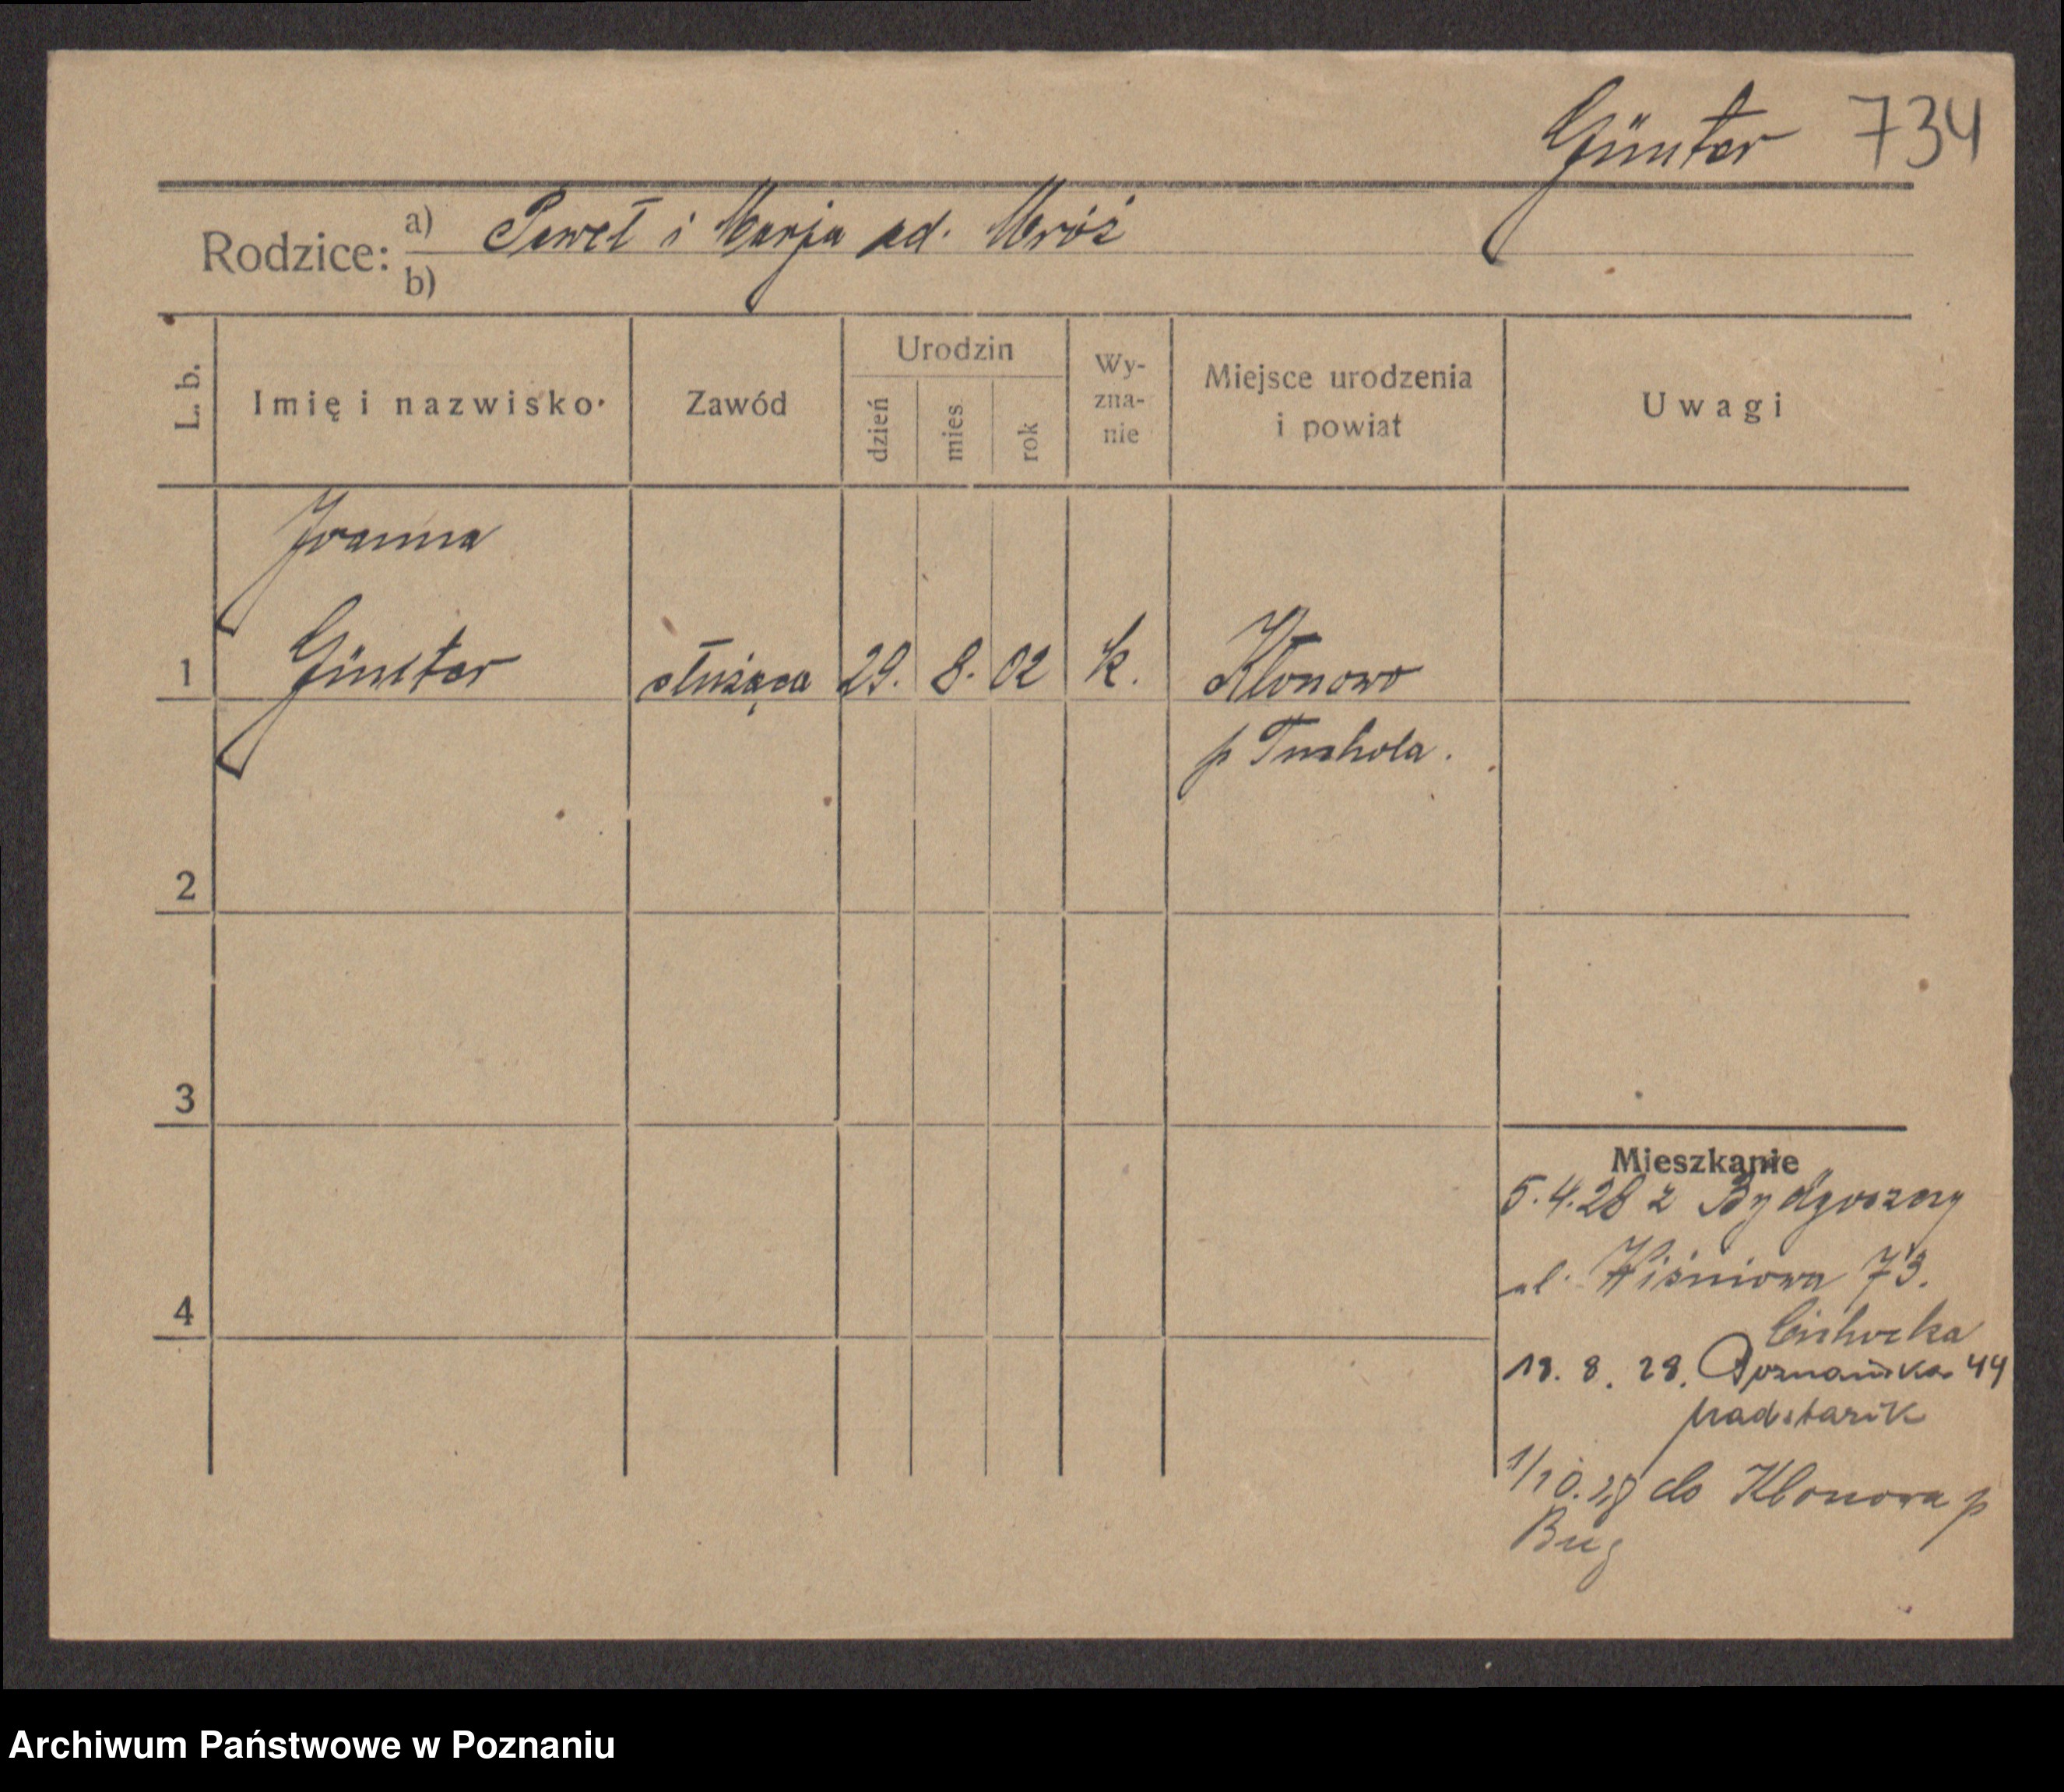 Günter 734
Rodzice: a) Paweł i Marja zd. Mróz
b)
L. b.
Imię i nazwisko.
Zawód
Urodzin
dzień
mies
rok
Wy-
zna-
nie
Miejsce urodzenia
i powiat
Uwagi
Joanna
1 Günter służąca 29. 8. 02 k. Kłonowo
p Tuchola.
2
3
4
Mieszkanie
5.4.28 z Bydgoszczy
ul. Wiśniowa 73.
Cichocka
18. 8. 28. Poznańska 44
1/10.28 do Klonowa p
Archiwum Państwowe w Poznaniu